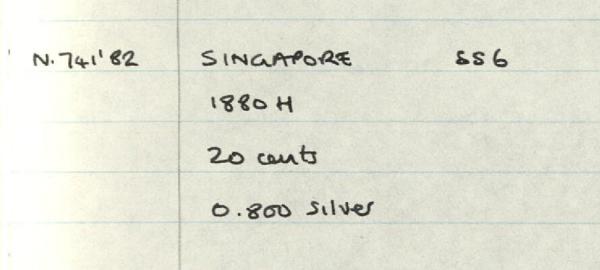 N.741'82 SINGAPORE SS6
1880 H
20 cents
0.800 silver